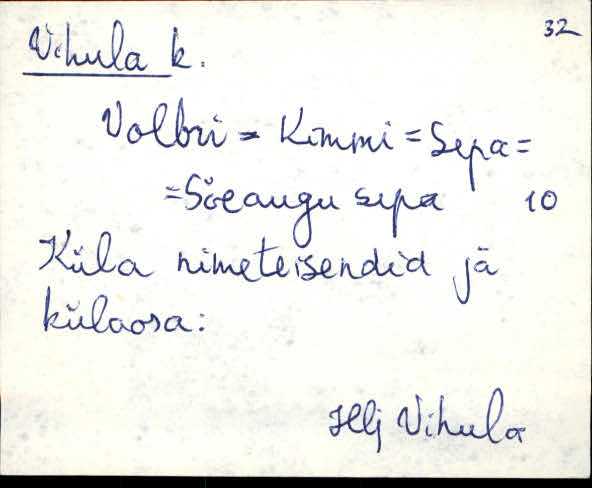 32
Vihula k.
Volbri = Kimmi = Sepa =
= Söeaugu sepa 10
Küla nimeteisendid jä
külaosa:
Hlj Vihula